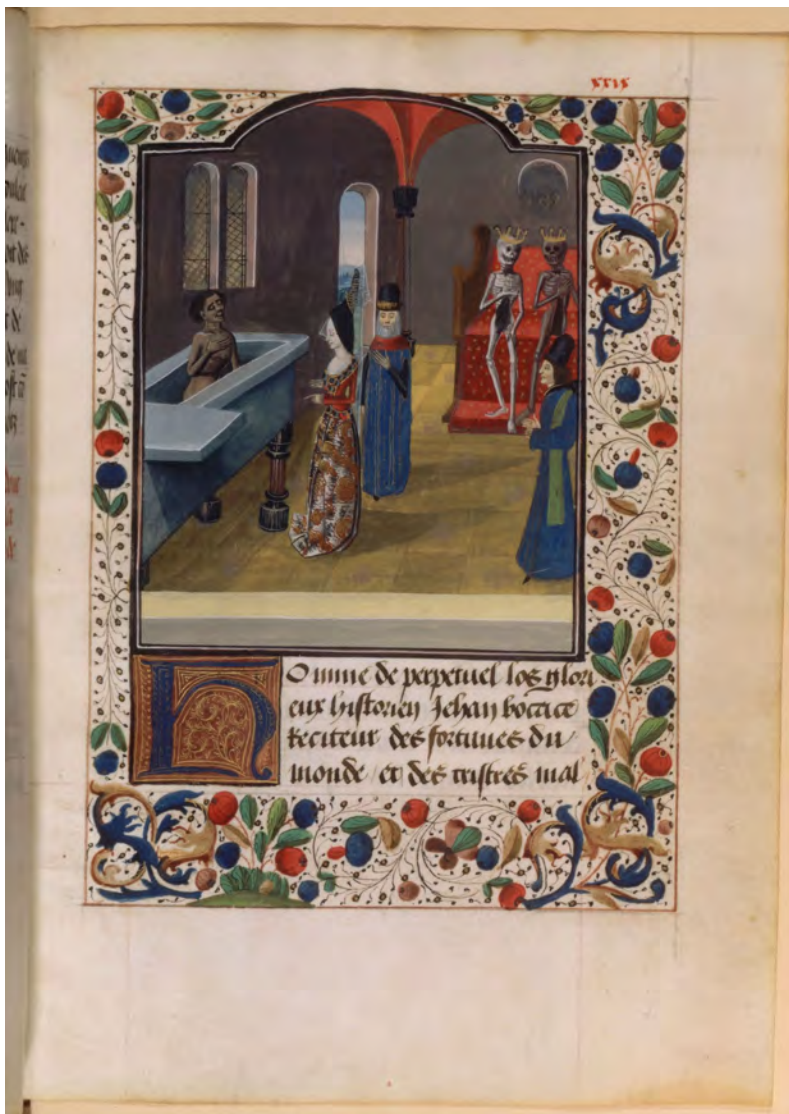 xxix
Homme de perpetuel los glori
eux historien Jehan boccace
Reciteur des fortunes du
monde / et des tristres mal